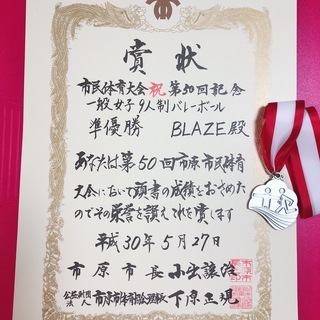 賞状
市民体育大会祝第50回記念
一般女子9人制バレーボール
準優勝 BLAZE殿
あなたは第50回市原市民体育
大会において頭書の成績をおさめた
のでその栄誉を讃えこれを賞します
平成30年5月27日
市原市長小出譲治
公益財団法人 市原市体育協会理事長 下原正規